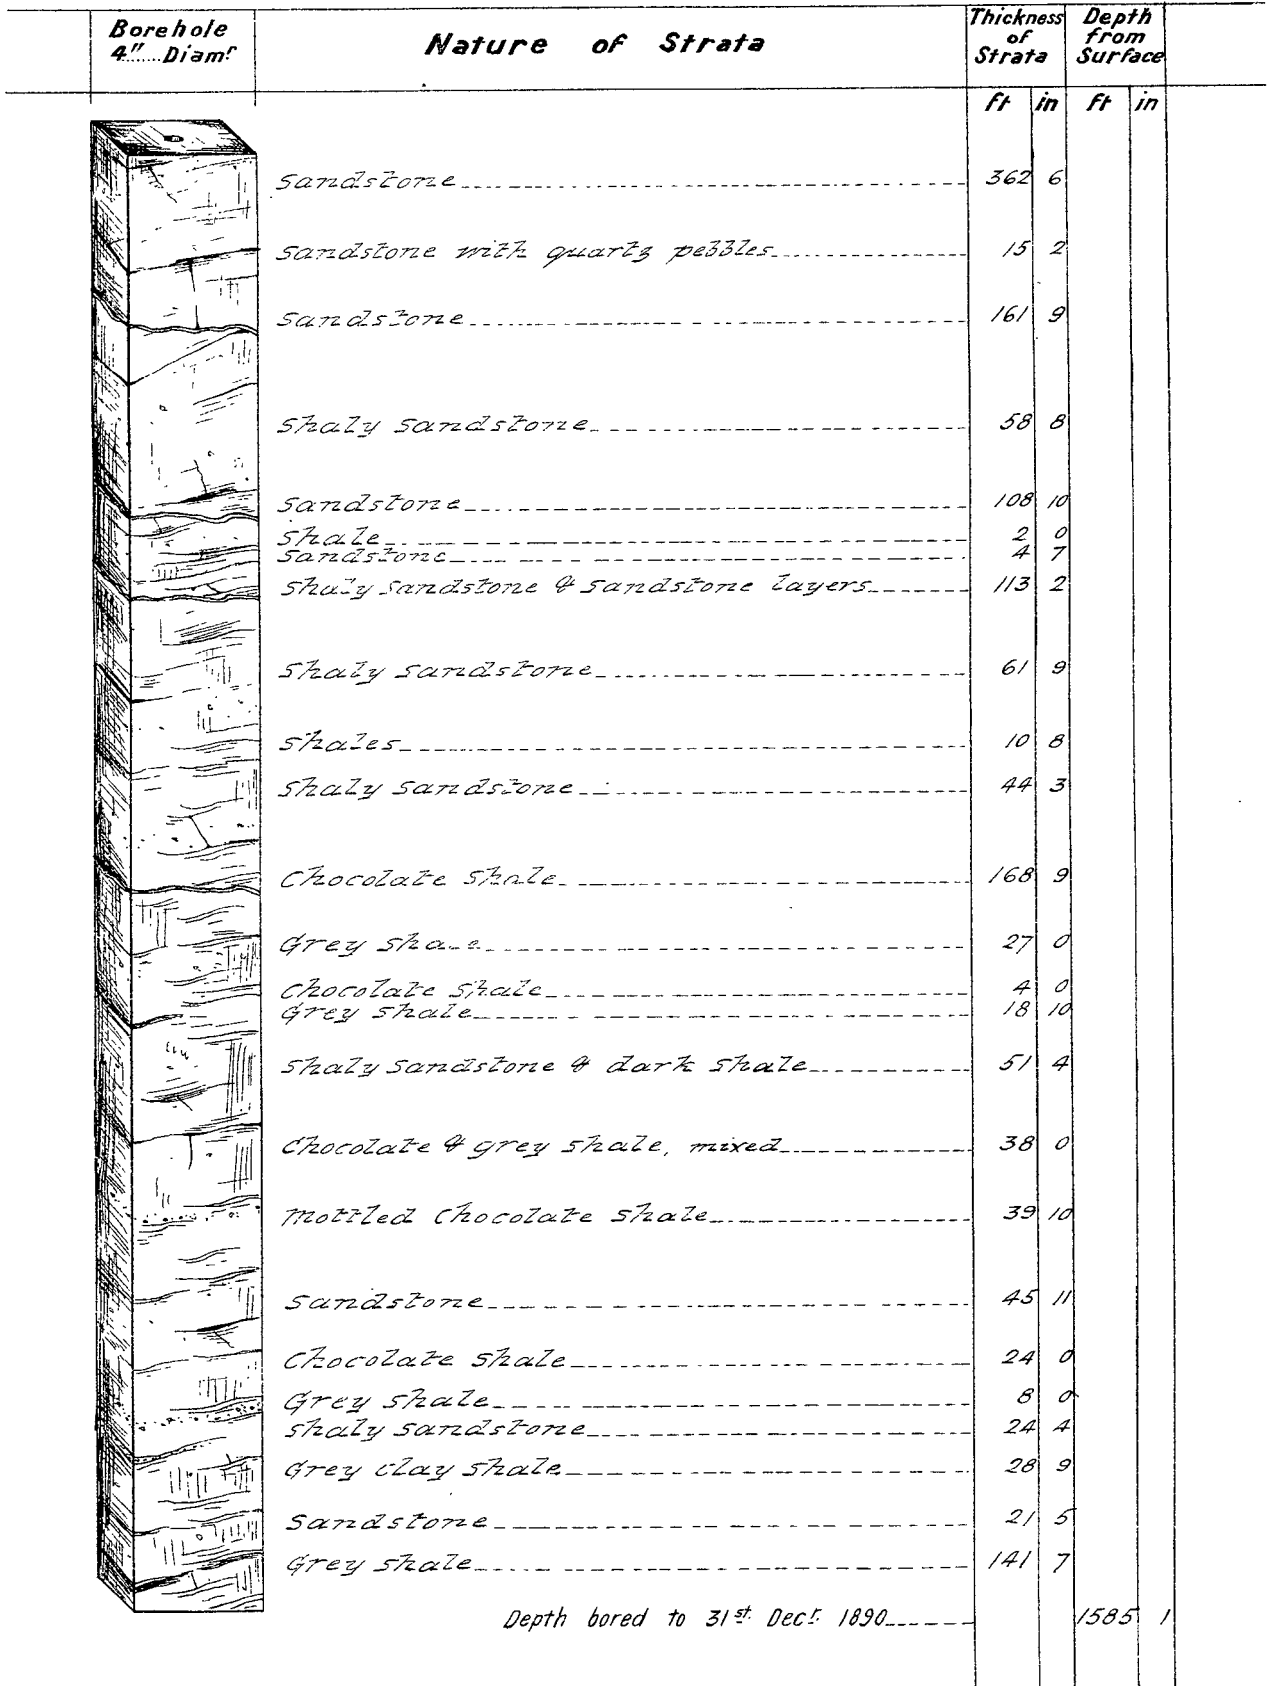 Borehole
4"......Diamr
Nature of Strata
Thickness
of
Strata
Depth
from
Surface
ft in ft in
Sandstone 362 6
Sandstone with quartz pebbles 15 2
Sandstone 161 9
Shaly sandstone 58 8
Sandstone 108 10
Shale 2 0
Sandstone 4 7
Shaly sandstone & sandstone layers 113 2
Shaly sandstone 61 9
Shales 10 8
Shaly sandstone 44 3
Chocolate shale 168 9
Grey shale 27 0
Chocolate shale 4 0
Grey shale 18 10
Shaly sandstone & dark shale 51 4
Chocolate & grey shale, mixed 38 0
Mottled Chocolate shale 39 10
Sandstone 45 11
Chocolate shale 24 0
Grey shale 8 0
Shaly sandstone 24 4
Grey clay shale 28 9
Sandstone 21 5
Grey shale 141 7
Depth bored to 31st Decr. 1890 1585 1